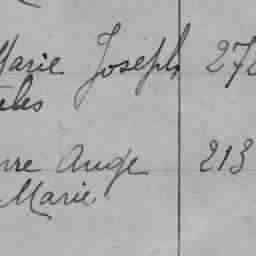 Marie Joseph 272
erre Ange 213
Marie